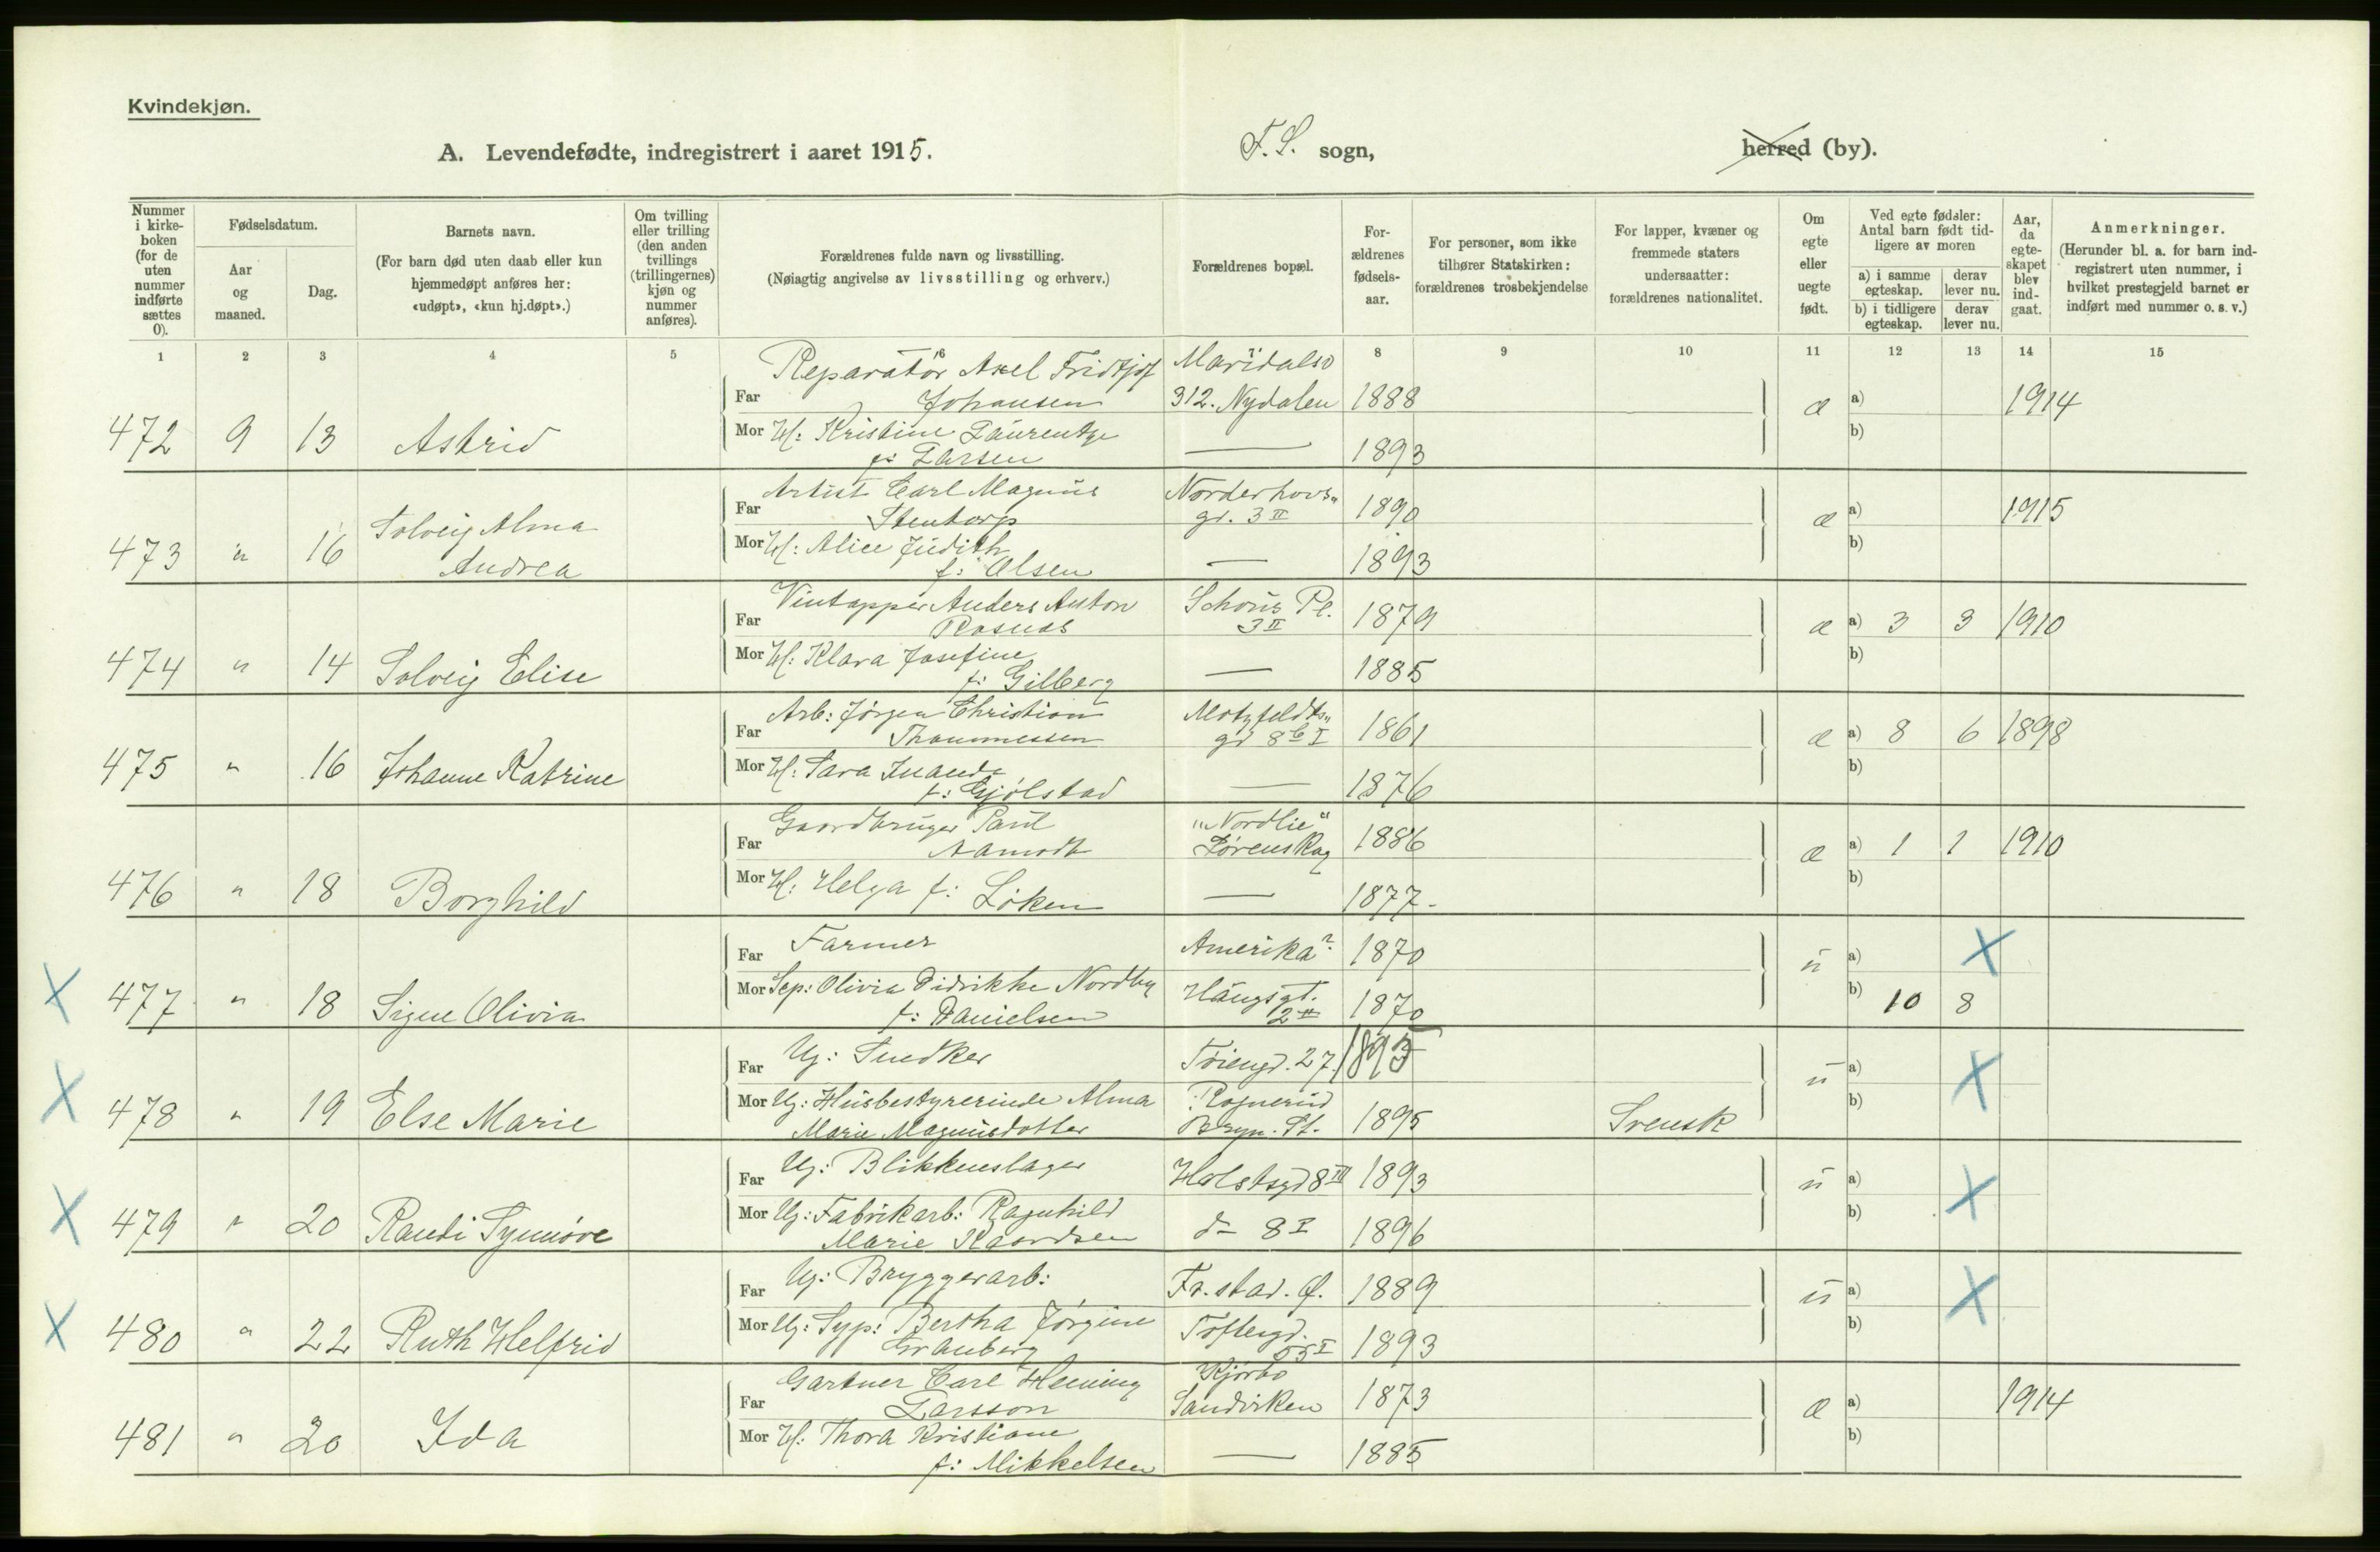 Kvindekjøn.
A. Levendefødte, indregistrert i aaret 1915.
F. S. sogn,
herred (by).
Nummer i kirke-boken (for de uten nummer indførte sættes 0).
Fødselsdatum.
Aar og maaned.
Dag.
Barnets navn.
(For barn død uten daab eller kun hjemmedøpt anføres her: «udøpt», «kun hj.døpt».)
Om tvilling eller trilling (den anden tvillings (trillingernes) kjøn og nummer anføres).
Forældrenes fulde navn og livsstilling.
(Nøiagtig angivelse av livsstilling og erhverv.)
Forældrenes bopæl.
For-ældrenes fødsels-aar.
For personer, som ikke tilhører Statskirken: forældrenes trosbekjendelse
For lapper, kvæner og fremmede staters undersaatter: forældrenes nationalitet.
Om egte eller uegte født.
Ved egte fødsler: Antal barn født tid-ligere av moren
a) i samme egteskap. derav lever nu.
b) i tidligere egteskap. derav lever nu.
Aar, da egte-skapet blev ind-gaat.
Anmerkninger.
(Herunder bl. a. for barn ind-registrert uten nummer, i hvilket prestegjeld barnet er indført med nummer o. s. v.)
1 2 3 4 5 6 8 9 10 11 12 13 14 15
Reparatør Axel Fridtjof Maridalsv
Far Johansen 312. Nydalen 1888 æ a) 1914
472 9 13 Astrid Mor H: Kristine Laurentze — b)
f: Larsen 1893
Artist Carl Magnus Norderhovs"
Solveig Alma Far Stentorp gd. 3 II 1890 æ a) 1915
473 " 16 Andrea Mor H: Alice Judith — 1893 b)
f: Olsen
Vintapper Anders Anton Schous Pl.
Far Rosnes 3 II 1879 æ a) 3 3 1910
474 " 14 Solveig Elise Mor H: Klara Josefine — 1885 b)
f: Gilberg
Arb: Jørgen Christian Motzfeldts"
Far Thommessen gd 8 b I 1861 æ a) 8 6 1898
475 " 16 Johanne Katrine Mor H: Sara — 1876 b)
f: Gjølstad
Gaardbruger Paul "Nordlie"
Far Aamodt Lørenskog 1886 æ a) 1 1 1910
476 " 18 Borghild Mor H: Helga f: Løken — 1877 - b)
Far Farmer Amerika? 1870 u a) X
X 477 " 18 Signe Olivia Mor Sep: Olivia Didrikke Nordby Haugsgt. 1870 b) 10 8
f: Danielsen 2 II
Far Ug: Snedker Tøiengd. 27. 1893 u a) X
X 478 " 19 Else Marie Mor Ug: Husbestyrerinde Alma Rognerud b)
Marie Magnusdotter Bryn. St. 1895 Svensk
Far Ug: Blikkenslager Holstsgd 8 III 1893 u a) X
X 479 " 20 Randi Synnøve Mor Ug: Fabrikarb: Ragnhild b)
Marie do 8 I 1896
Far Ug: Bryggerarb: Fr.stad. Ø. 1889 u a) X
X 480 " 22 Ruth Helfrid Mor Ug: Syp: Bertha Jørgine Toftesgd. b)
Granberg 55 I 1893
Gartner Carl Henning Kjørbo
Far Larsson Sandviken 1873 æ a) 1914
481 " 20 Ida Mor H: Thora Kristiane — 1885 b)
f: Mikkelsen